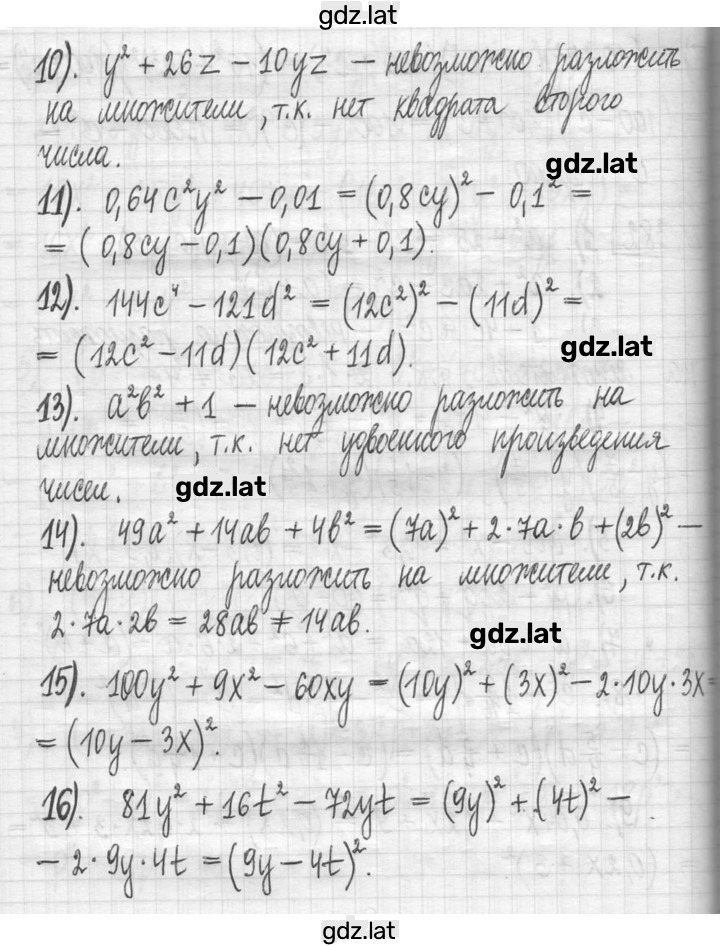 gdz.lat
10). y² + 26z − 10yz − невозможно разложить
на множители, т.к. нет квадрата второго
числа.
gdz.lat
11). 0,64c²y² − 0,01 = (0,8cy)² − 0,1² =
= (0,8cy − 0,1)(0,8cy + 0,1).
12). 144c⁴ − 121d² = (12c²)² − (11d)² =
= (12c² − 11d)(12c² + 11d).
gdz.lat
13). a²b² + 1 − невозможно разложить на
множители, т.к. нет удвоенного произведения
чисел.
gdz.lat
14). 49a² + 14ab + 4b² = (7a)² + 2·7a·b + (2b)² −
невозможно разложить на множители, т.к.
2·7a·2b = 28ab ≠ 14ab.
gdz.lat
15). 100y² + 9x² − 60xy = (10y)² + (3x)² − 2·10y·3x =
= (10y − 3x)².
16). 81y² + 16t² − 72yt = (9y)² + (4t)² −
− 2·9y·4t = (9y − 4t)².
gdz.lat